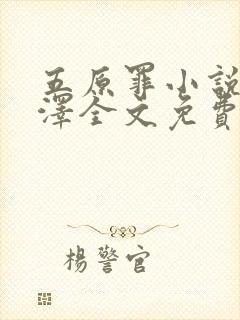 五原罪小說
澤全文免費
楊警官